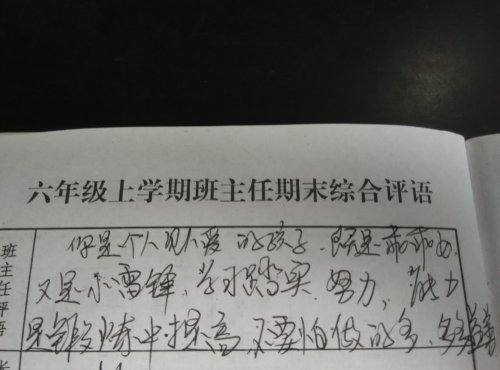 六年级上学期班主任期末综合评语
班主任评语
你是个人见人爱的孩子，既是乖乖女，
又是小雷锋，学习踏实、努力，能力
是锻炼中提高，不要怕做的多，